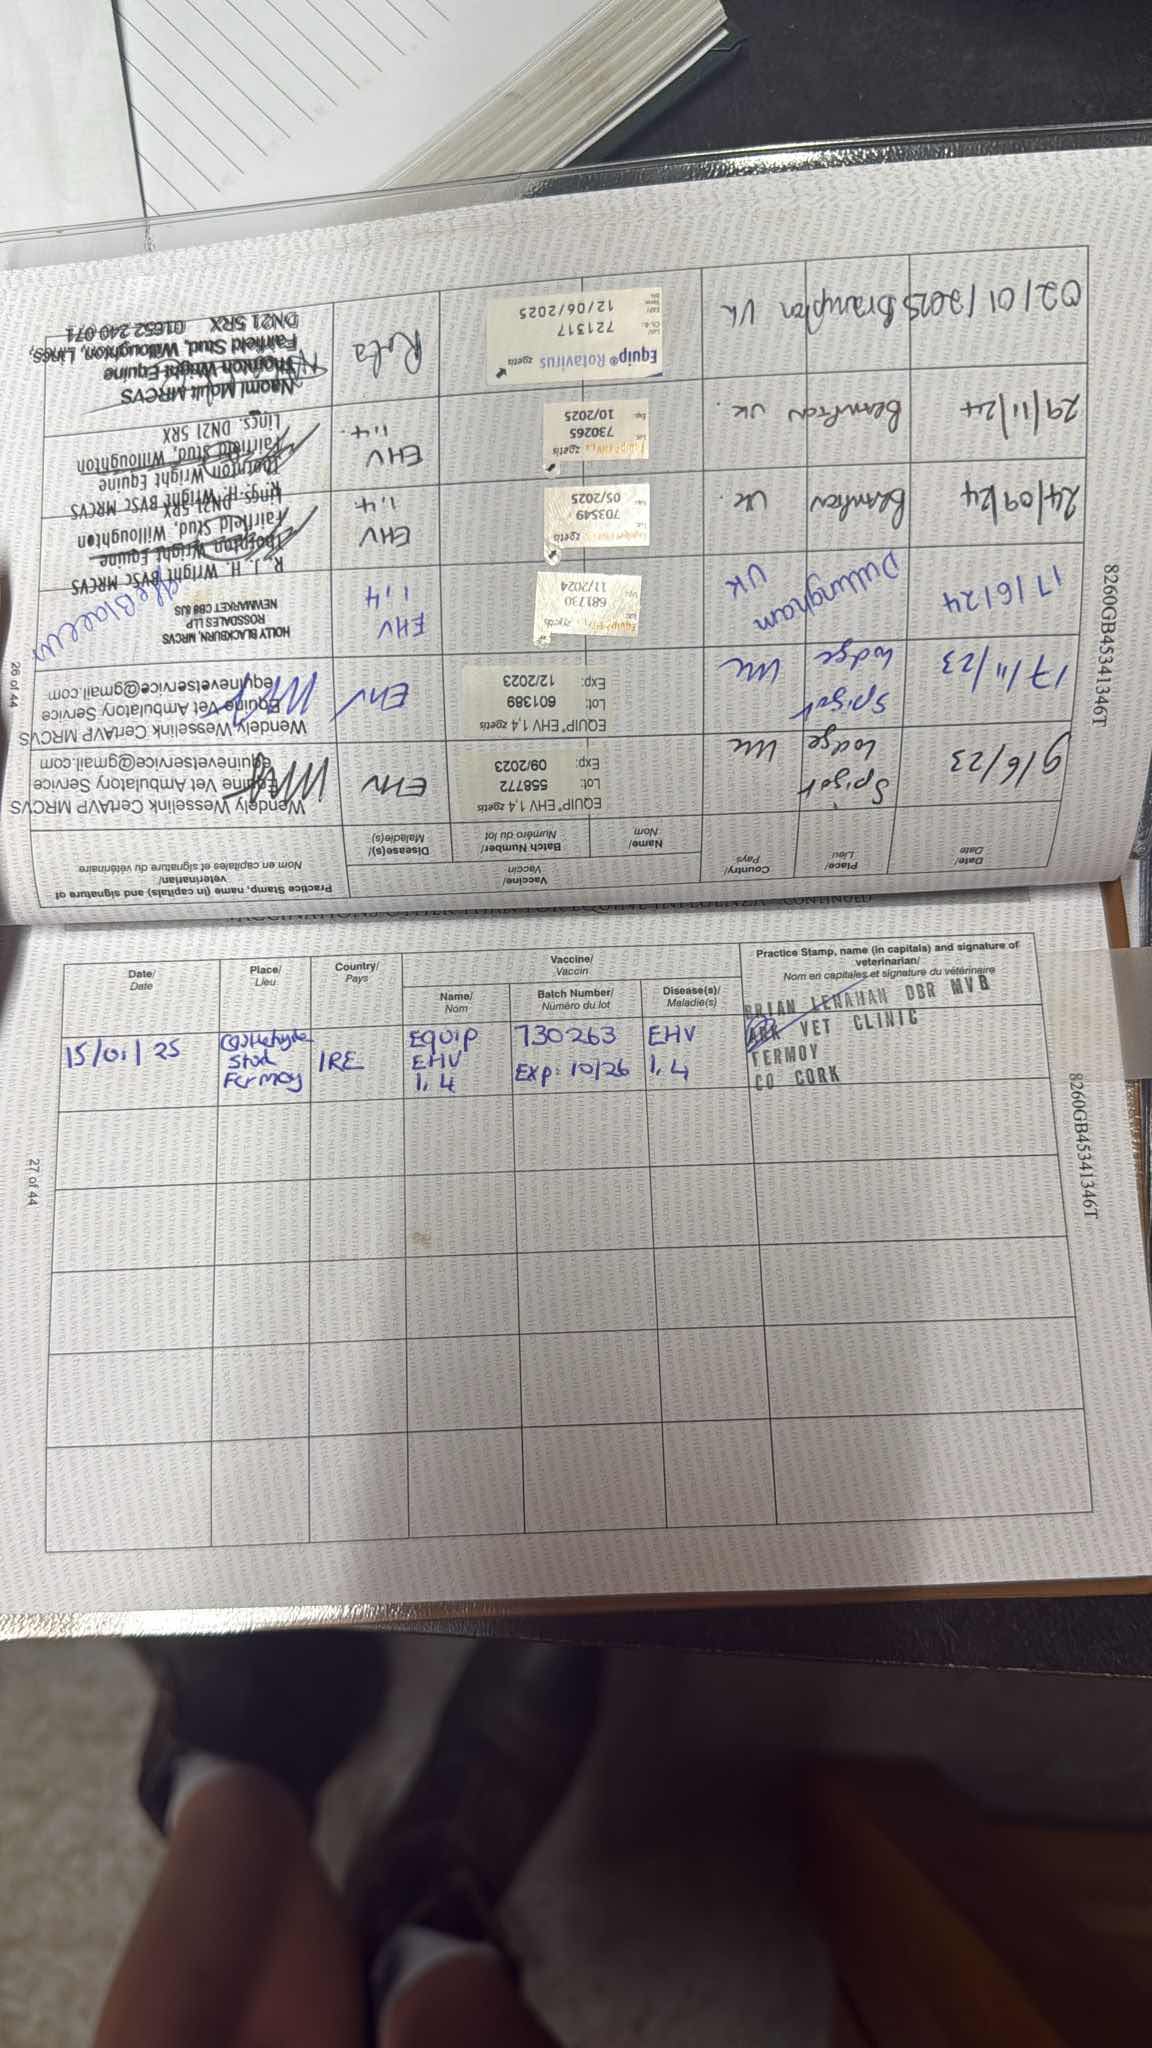 26 of 44
8260GB45341346T
Date/
Date
Place/
Lieu
Country/
Pays
Vaccine/
Vaccin
Name/
Nom
Batch Number/
Numéro du lot
Disease(s)/
Maladie(s)
Practice Stamp, name (in capitals) and signature of
veterinarian/
Nom en capitales et signature du vétérinaire
9/6/23
Spigot
Lodge
UK
EQUIP® EHV 1,4 zoetis
Lot: 558772
Exp: 09/2023
EHV
Wendely Wesselink CertAVP MRCVS
Equine Vet Ambulatory Service
equinevetservice@gmail.com
17/11/23
Spigot
Lodge
UK
EQUIP® EHV 1,4 zoetis
Lot: 601389
Exp: 12/2023
EHV
Wendely Wesselink CertAVP MRCVS
Equine Vet Ambulatory Service
equinevetservice@gmail.com
17/6/24
Dullingham
UK
681730
11/2024
EHV
1,4
HOLLY BLACKBURN, MRCVS
ROSSDALES LLP
NEWMARKET CB8 8JS
24/09/24
UK
703549
05/2025
EHV
1,4.
R. J. H. Wright BVSc MRCVS
Thornton Wright Equine
Fairfield Stud, Willoughton
Lings. DN21 5RX
29/11/24
UK.
730265
10/2025
EHV
1,4.
R. J. H. Wright BVSc MRCVS
Thornton Wright Equine
Fairfield Stud, Willoughton
Lings. DN21 5RX
02/01/2025
Brampton
UK
Equip® Rotavirus zoetis
721317
12/06/2025
Rota
Naomi MRCVS
Thornton Wright Equine
Fairfield Stud, Willoughton, Lincs,
DN21 5RX 01652 240 071
VACCINATIONS OTHER THAN FOR EQUINE INFLUENZA - CONTINUED
Date/
Date
Place/
Lieu
Country/
Pays
Vaccine/
Vaccin
Name/
Nom
Batch Number/
Numéro du lot
Disease(s)/
Maladie(s)
Practice Stamp, name (in capitals) and signature of
veterinarian/
Nom en capitales et signature du vétérinaire
15/01/25
Stud
Fermoy
IRE
EQUIP
EHV
1,4
730263
Exp: 10/26
EHV
1,4
BRIAN LENAHAN DBR MVB
ARK VET CLINIC
FERMOY
CO CORK
27 of 44
8260GB45341346T